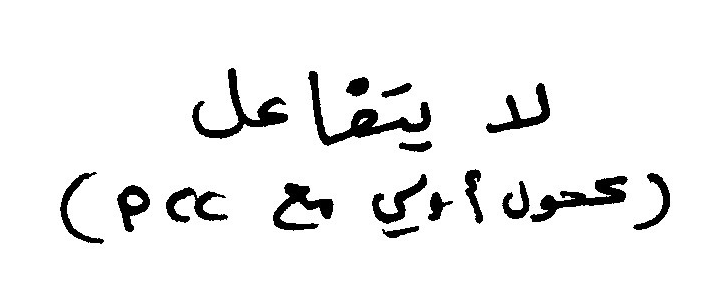 لا يتفاعل
(كحول أولي مع PCC)